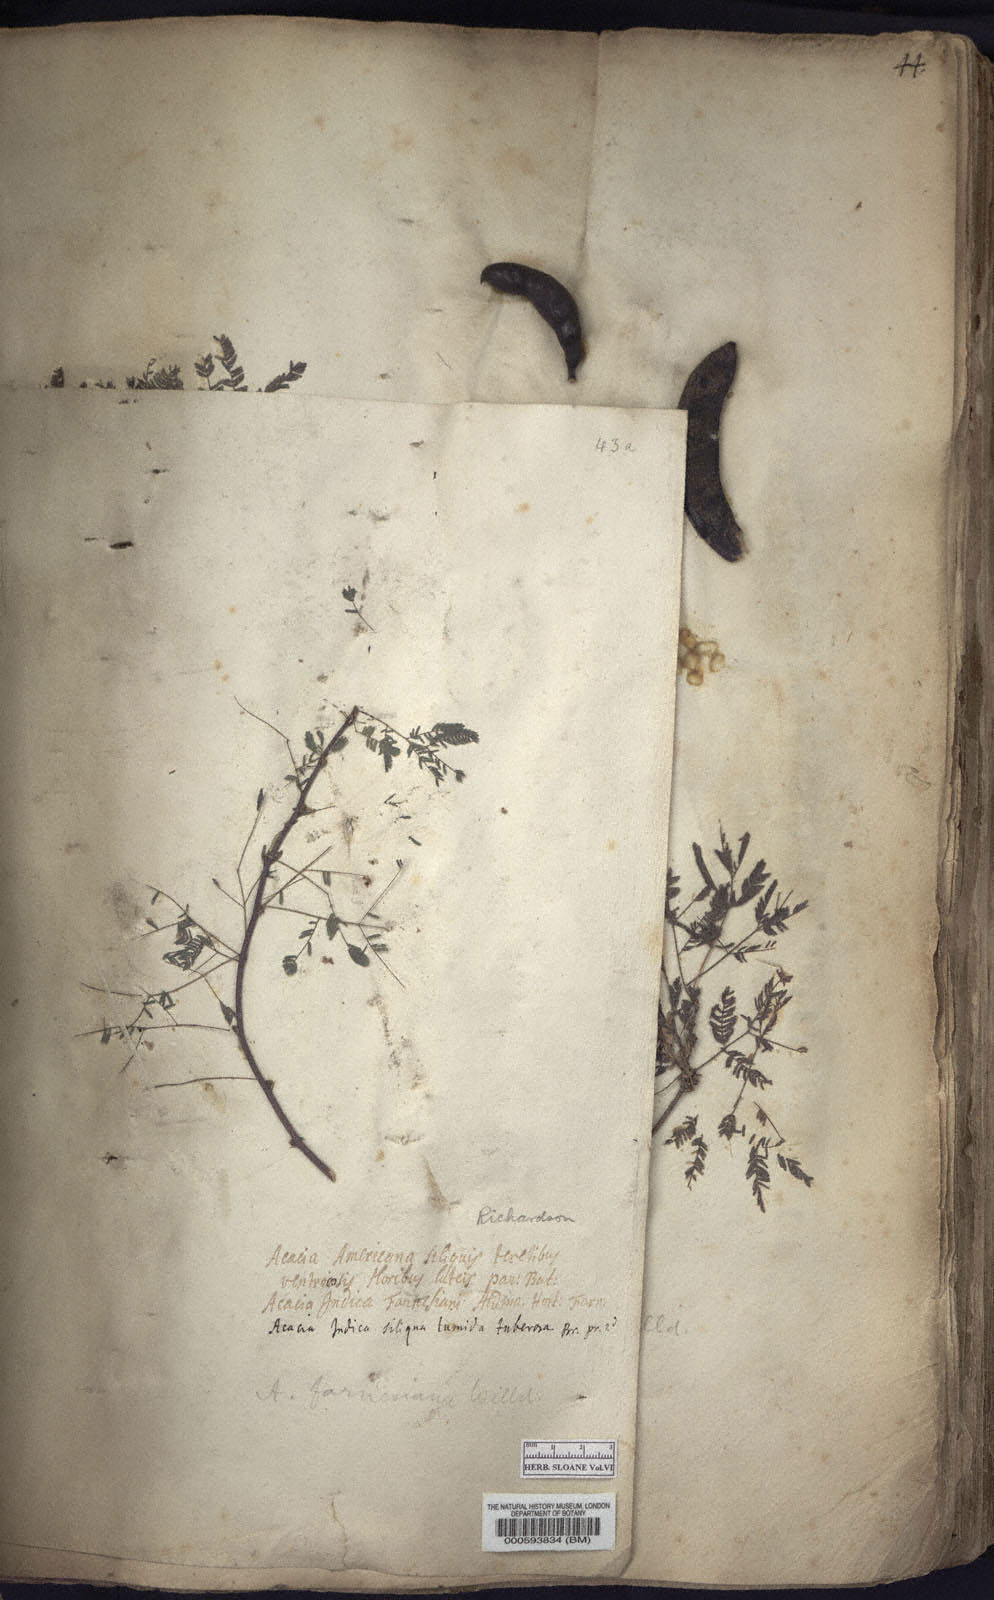 44.
43a
Richardson
Acacia Americana siliquis teretibus
ventricosis floribus luteis par: Bat:
Acacia Indica Farnesiani Aldina. Hort: Farn:
Acacia Indica siliqua tumida tuberosa Br. pr. 2d
lld.
A. farnesiana Willd.
BM 1 2 3
HERB. SLOANE Vol.VI
THE NATURAL HISTORY MUSEUM, LONDON
DEPARTMENT OF BOTANY
000593834 (BM)